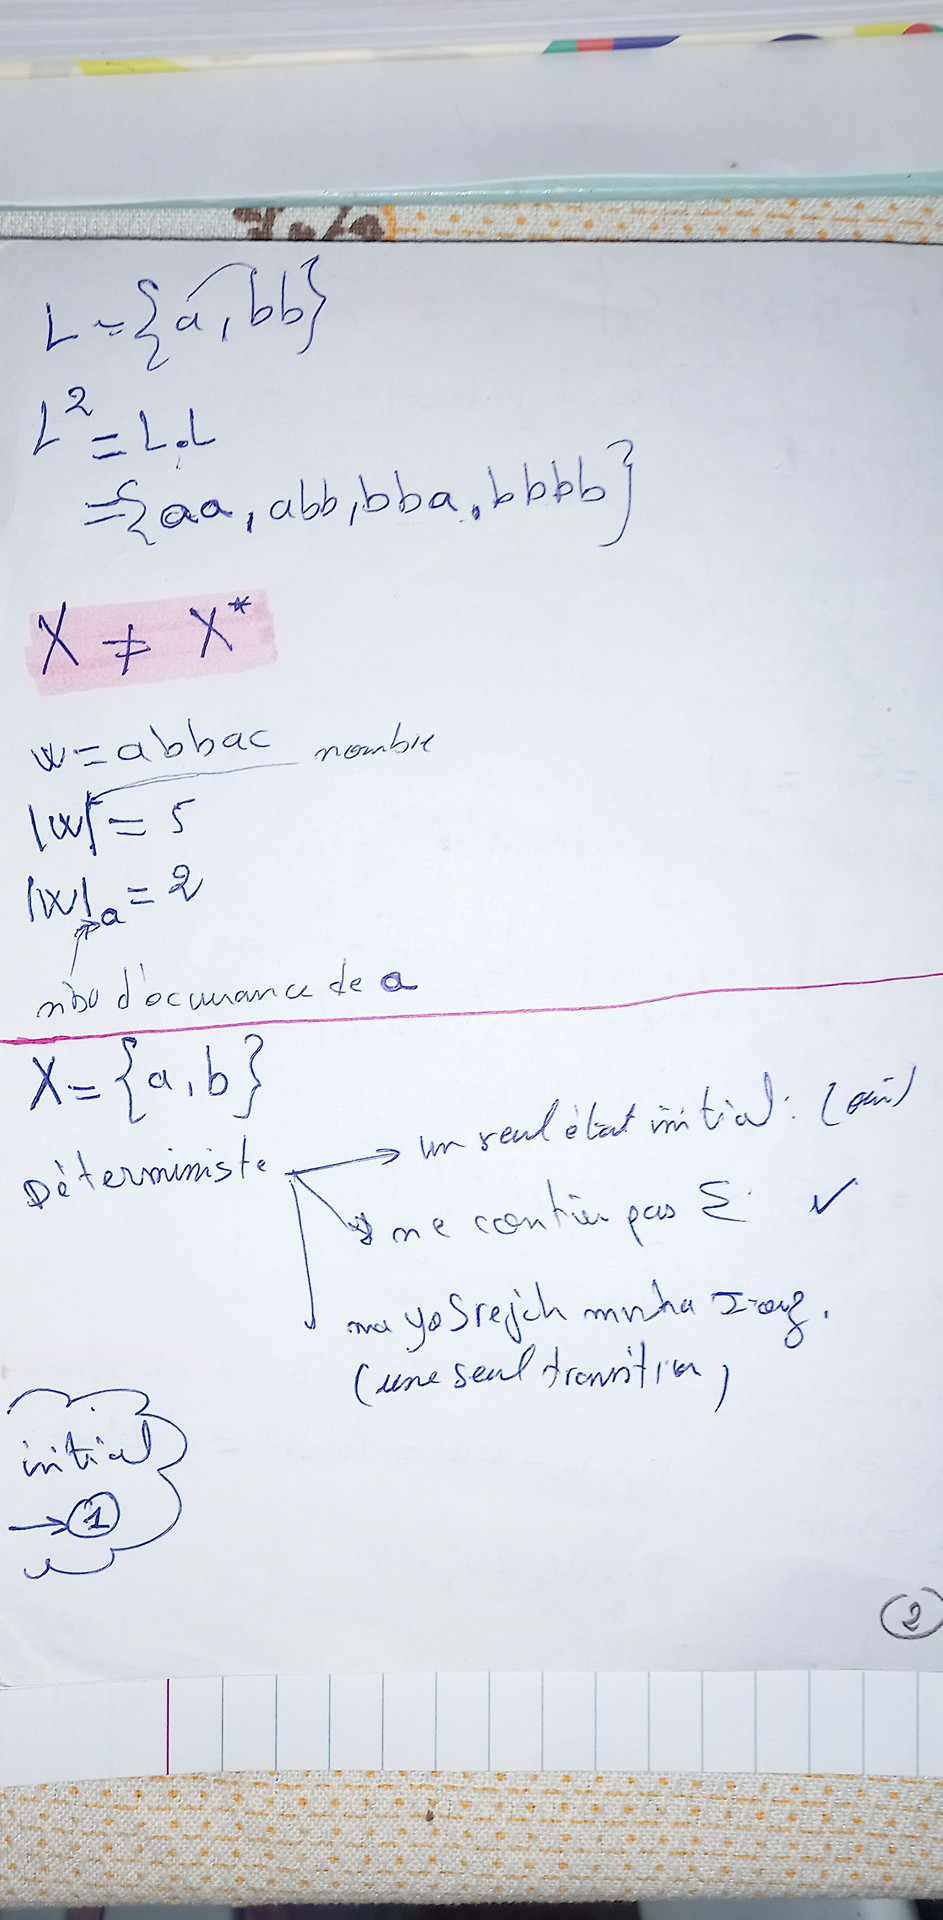 L = {a, bb}
L² = L.L
= {aa, abb, bba, bbbb}
X ≠ X*
w = abbac nombre
|w| = 5
|w|a = 2
d'occurance de a
X = {a, b}
Déterministe → un seul état initial : (oui)
ne contien pas Σ ✓
ma yo5rejch menha
(une seul transition)
initial
→ 1
2